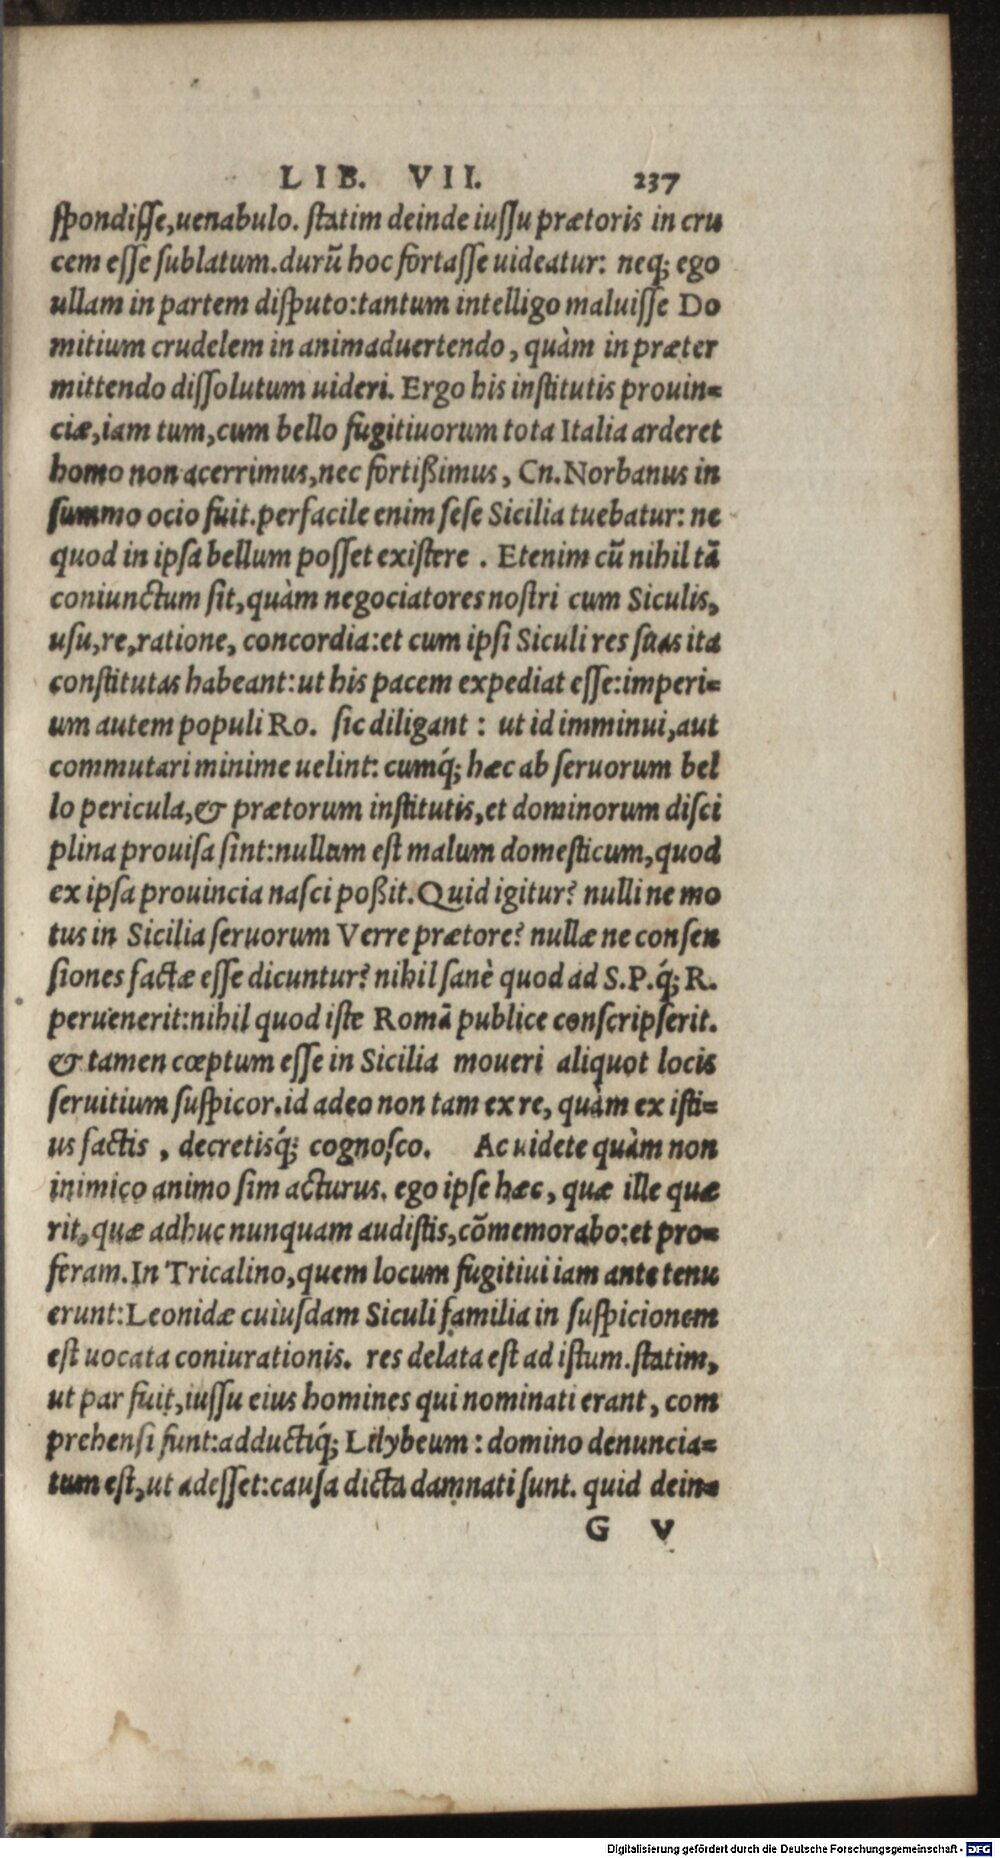 LIB. VII. 237
ſpondiſſe,uenabulo. ſtatim deinde iuſſu prætoris in cru
cem eſſe ſublatum.durũ hoc fortaſſe uideatur: neq; ego
ullam in partem diſputo:tantum intelligo maluiſſe Do
mitium crudelem in animaduertendo, quàm in præter
mittendo diſſolutum uideri. Ergo his inſtitutis prouin=
ciæ,iam tum,cum bello fugitiuorum tota Italia arderet
homo non acerrimus,nec fortißimus, Cn.Norbanus in
summo ocio fuit.perfacile enim ſeſe Sicilia tuebatur: ne
quod in ipſa bellum poſſet exiſtere . Etenim cũ nihil tã
coniunctum ſit,quàm negociatores noſtri cum Siculis,
uſu,re,ratione, concordia:et cum ipſi Siculi res ſuas ita
conſtitutas habeant:ut his pacem expediat eſſe:imperi=
um autem populi Ro. ſic diligant : ut id imminui,aut
commutari minime uelint: cumq́; hæc ab ſeruorum bel
lo pericula,& prætorum inſtitutis,et dominorum diſci
plina prouiſa ſint:nullum eſt malum domeſticum,quod
ex ipſa prouincia naſci poßit.Quid igitur? nulli ne mo
tus in Sicilia ſeruorum Verre prætore? nullæ ne conſen
ſiones factæ eſſe dicuntur? nihil ſanè quod ad S.P.q́; R.
peruenerit:nihil quod iſte Romã publice conſcripſerit.
& tamen cœptum eſſe in Sicilia moueri aliquot locis
ſeruitium ſuſpicor.id adeo non tam ex re, quàm ex iſti=
us factis , decretisq́; cognoſco. Ac uidete quàm non
inimico animo ſim acturus. ego ipſe hæc, quæ ille quæ
rit,quæ adhuc nunquam audiſtis,cõmemorabo:et pro=
feram.In Tricalino,quem locum fugitiui iam ante tenu
erunt:Leonidæ cuiuſdam Siculi familia in ſuſpicionem
eſt uocata coniurationis. res delata eſt ad iſtum.ſtatim,
ut par fuit,iuſſu eius homines qui nominati erant, com
prehenſi ſunt:adductiq́; Lilybeum : domino denuncia=
tum eſt,ut adeſſet:cauſa dicta damnati ſunt. quid dein=
G V
Digitalisierung gefördert durch die Deutsche Forschungsgemeinschaft - DFG